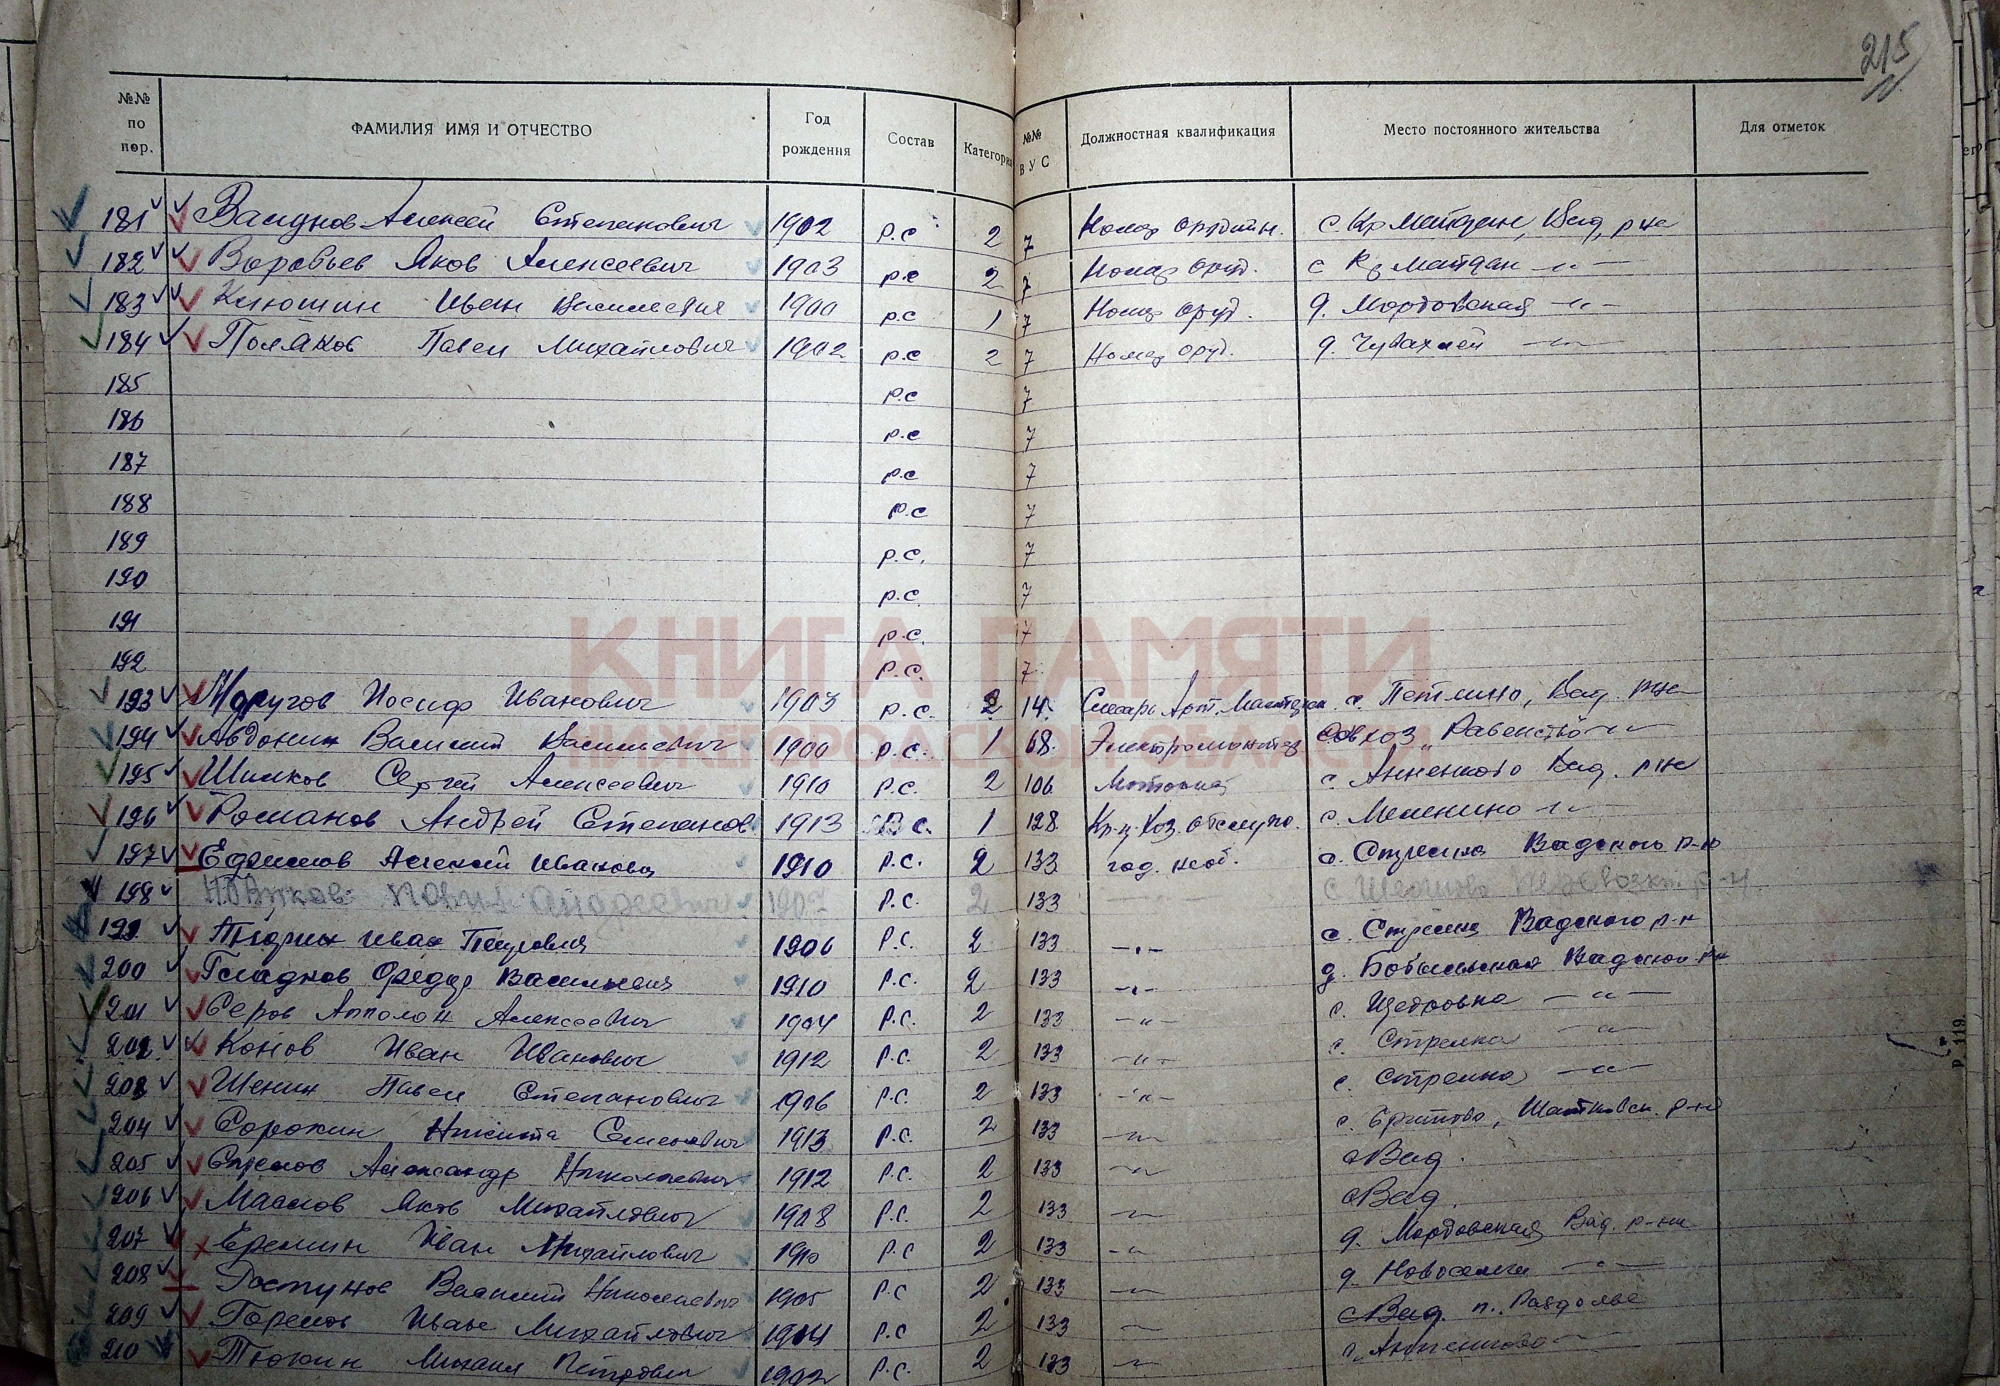 215
№№ по пор. ФАМИЛИЯ ИМЯ И ОТЧЕСТВО Год рождения Состав Категория №№ ВУС Должностная квалификация Место постоянного жительства Для отметок
181 Алексей Степанович 1902 р.с 2 7 Номер орудийн. с Кр Майдан, Вад, р-на
182 Воробьев Яков Алексеевич 1903 р.с 2 7 Номер оруд. с Кр Майдан -"-
183 Клюшин Иван Васильевич 1900 р.с 1 7 Номер оруд. д. Мордовская -"-
184 Поляков Павел Михайлович 1902 р.с 2 7 Номер оруд. д. Чувахлей -"-
185 р.с 7
186 р.с 7
187 р.с 7
188 р.с 7
189 р.с. 7
190 р.с. 7
191 р.с. 7
192 р.с. 7
193 Иосиф Иванович 1903 р.с. 2 14 Слесарь Арт. с. Петлино, Вад. р-на
194 Авдонин Василий Васильевич 1900 р.с. 1 68 Электромонтер совхоз "Равенство -"-
195 Шишков Сергей Алексеевич 1910 р.с. 2 106 с. Анненково Вад. р-на
196 Романов Андрей Степанов 1913 с. 1 128 Кр-ц. Хоз. обслуж. с. Меленино -"-
197 Ефремов Алексей Иванович 1910 р.с. 2 133 год. необ. с. Стрелка Вадского р-н
198 Новиков Павел Андреевич 1907 р.с. 2 133 с р-н
199 Андрин Иван Петрович 1906 р.с. 2 133 -"- с. Стрелка Вадского р-н
200 Гладков Федор Васильевич 1910 р.с. 2 133 -"- д. Бобыльская Вадског р-н
201 Серов Апполон Алексеевич 1904 р.с. 2 133 -"- с. Щедровка -"-
202 Конов Иван Иванович 1912 р.с. 2 133 -"- с. Стрелка -"-
203 Шенин Павел Степанович 1906 р.с. 2 133 -"- с. Стрелка -"-
204 Сорокин Никита Семенович 1913 р.с. 2 133 -"- с. Шатковск. р-на
205 Александр Николаевич 1912 р.с. 2 133 -"- с Вад.
206 Маслов Яков Михайлович 1908 р.с. 2 133 -"- с Вад
207 Еремин Иван Михайлович 1910 р.с 2 133 -"- д. Мордовская Вад. р-на
208 Василий Николаевич 1905 р.с 2 133 -"- д. Новоселки -"-
209 Горелов Иван Михайлович 1904 р.с 2 133 -"- с Вад. п. Раздолье
210 Тюкин Михаил Петрович 1902 р.с. 2 133 -"- с. Анненково -"-
КНИГА ПАМЯТИ
НИЖЕГОРОДСКОЙ ОБЛАСТИ
Р. 119.